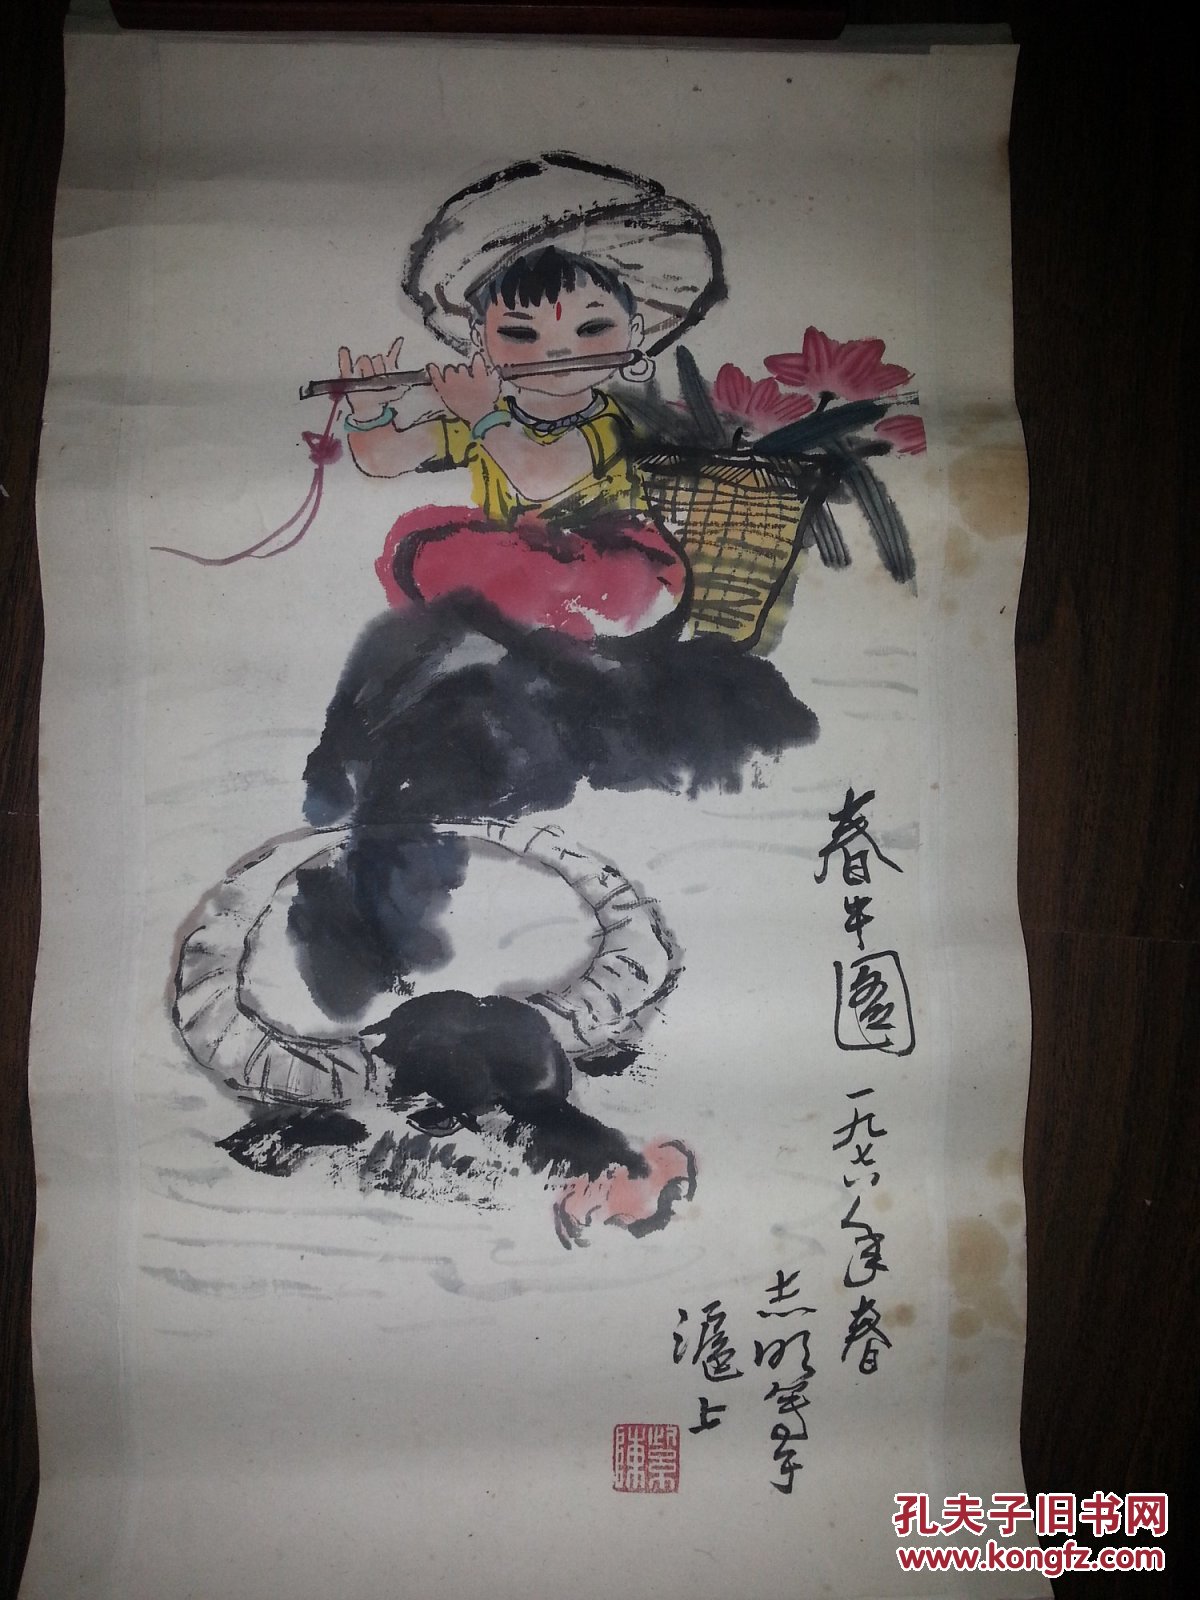 春牛圖
一九七六年春
志明写于
滬上
孔夫子旧书网
www.kongfz.com